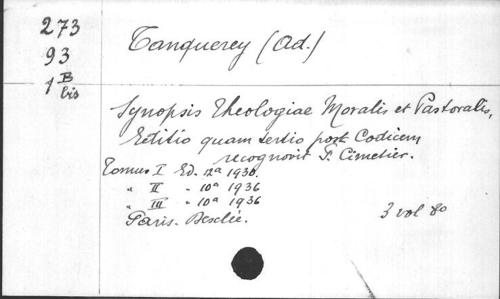 273
93
1 B bis
Tanquerey (Ad.)
Synopsis Theologiae Moralis et Pastoralis,
Editio quam tertio post Codicem
recognovit F. Cimetier.
Tomus I Ed. 12a 1930.
" II " 10a 1936
" III " 10a 1936
Paris. Desclée.
3 vol 8o